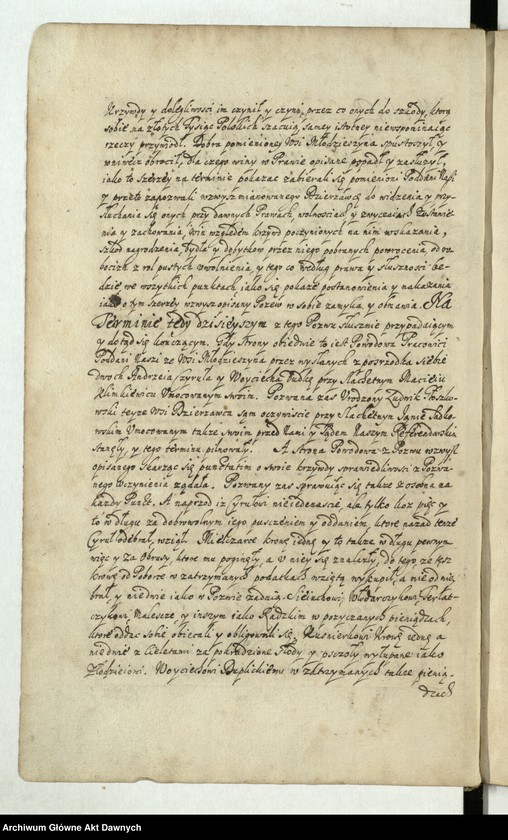 Krzywdy y dolegliwosci im czynił y czyni, przez co onych do szkody, ktorą
sobie na złotych Tysiąc Polskich szacuią, samey istotney niewspominaiąc
rzeczy przywiodł. Dobra pomienioney Wsi Młodzieszyna spustoszył, y
wniwecz obrocił, Dla czego winy w Prawie opisane popadł y zasłużył,
iako to szerzey na terminie pokazać zabierali się pomienieni Poddani Nasi
y przeto zapozwali wzwysz mianowanego Dzierzawcę do widzenia y przy-
słuchania się onych przy dawnych Prawach, wolnosciach y zwyczaiach zostawie-
nia y zachowania, Win względem krzywd poczynionych na nim wskazania,
szkod nagrodzenia, bydła y dobytkow przez niego pobranych powrocenia, od ro-
bocizn z rol pustych uwolnienia, y tego co według prawa y słusznosci bę-
dzie we wszytkich punktach iako się pokaze postanowienia y nakazania
iako o tym szerzey wzwysz opisany Pozew w sobie zamyka y obmawia. Na
Terminie tedy dzisieyszym z tego Pozwu słusznie przypadaiącym
y dotąd się kończącym. Gdy Strony obiedwie to iest Powodowa Pracowici
Poddani Naszi ze Wsi Młodzieszyna przez wysłanych z posrzodka siebie
dwoch Andrzeia Cyrula y Woyciecha przy Slachetnym Macieiu
Klimkiewiczu Umocowanym swoim. Pozwana zas Urodzony Ludwik
wski teyze Wsi Dzierzawca sam oczywiscie przy Slachetnym Janie Sadko-
wskim Umocowanym także swoim przed Nami y Sądem Naszym Referendarskim
stanęły, y tego termina pilnowały. A Strona Powodowa z Pozwu wzwysz
opisanego skarżąc się punctatim o swoie krzywdy sprawiedliwosci z Pozwa-
nego uczynienia żądała. Pozwany zas sprawuiąc się także z osobna na
każdy Punkt. A naprzod iz Cyrulowi nieiedenascie, ale tylko koz pięć y
to w długu za dobrowolnym iego puszczeniem y oddaniem, ktore nazad tenże
Cyrul odebrał, wziął. Mielczarce krowę iedną y to także w długu pewnym
więc y za Obrusy, ktore mu poginęły, a U niey się znalazły, do tego, że tęż
krowę od Poborce w zatrzymanych podatkach wziętą wykupił, a nie od niey
brał, y nie dwie iako w Pozwie żadna. Sielachowi, Włodarczykowi,
czykowi, Maleszce y inszym iako Radzkim w pozyczanych pieniądzach,
ktore oddać sobie obiecali y obligowali się, Kusnierkowi Krowę iedną a
nie dwie z Cielętami za pokradzione Słody y pszczoły wyłupane iako
Złodzieiowi. Woyciechowi Duplickiemu w zatrzymanych także pienią-
dzach